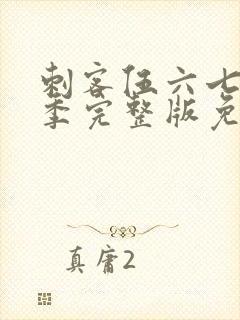 刺客伍六七
季完整版免
真庸2